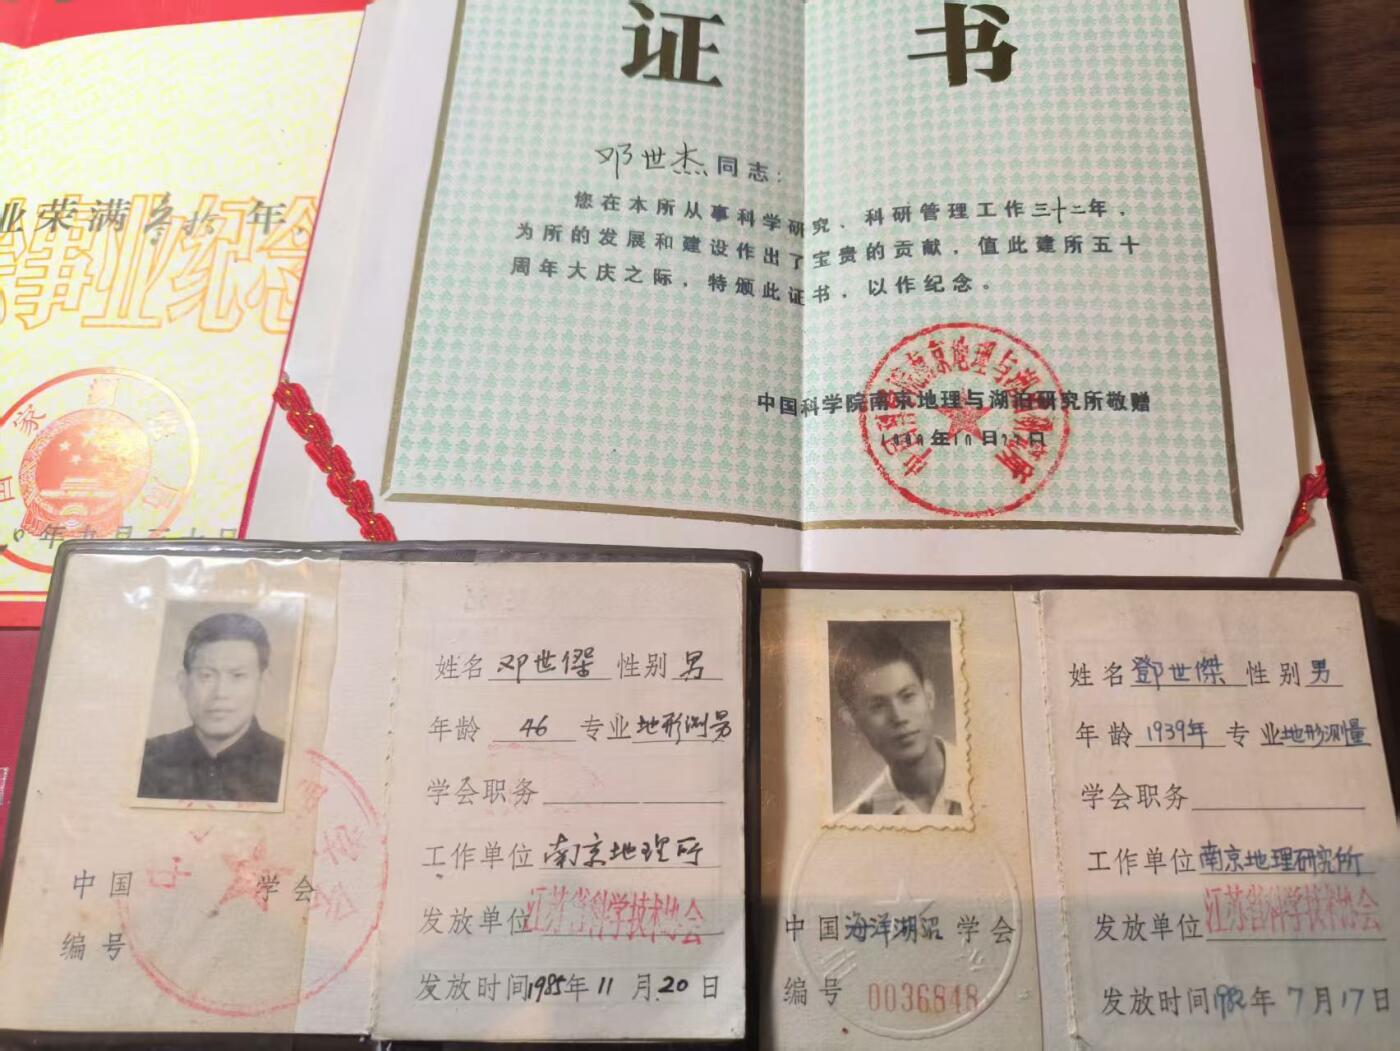 业荣满叁拾年,
事业纪念
证书
邓世杰同志:
您在本所从事科学研究、科研管理工作三十二年,
为所的发展和建设作出了宝贵的贡献,值此建所五十
周年大庆之际,特颁此证书,以作纪念。
中国科学院南京地理与湖泊研究所敬赠
姓名 邓世傑 性别 男
年龄 46 专业 地形测量
学会职务
工作单位 南京地理所
发放单位 江苏省科学技术协会
发放时间 1985年 11 月 20 日
中国 学会
编号
姓名 鄧世傑 性别 男
年龄 1939年 专业 地形测量
学会职务
工作单位 南京地理研究所
发放单位 江苏省科学技术协会
发放时间 1982年 7月17日
中国海洋湖沼学会
编号 0036848